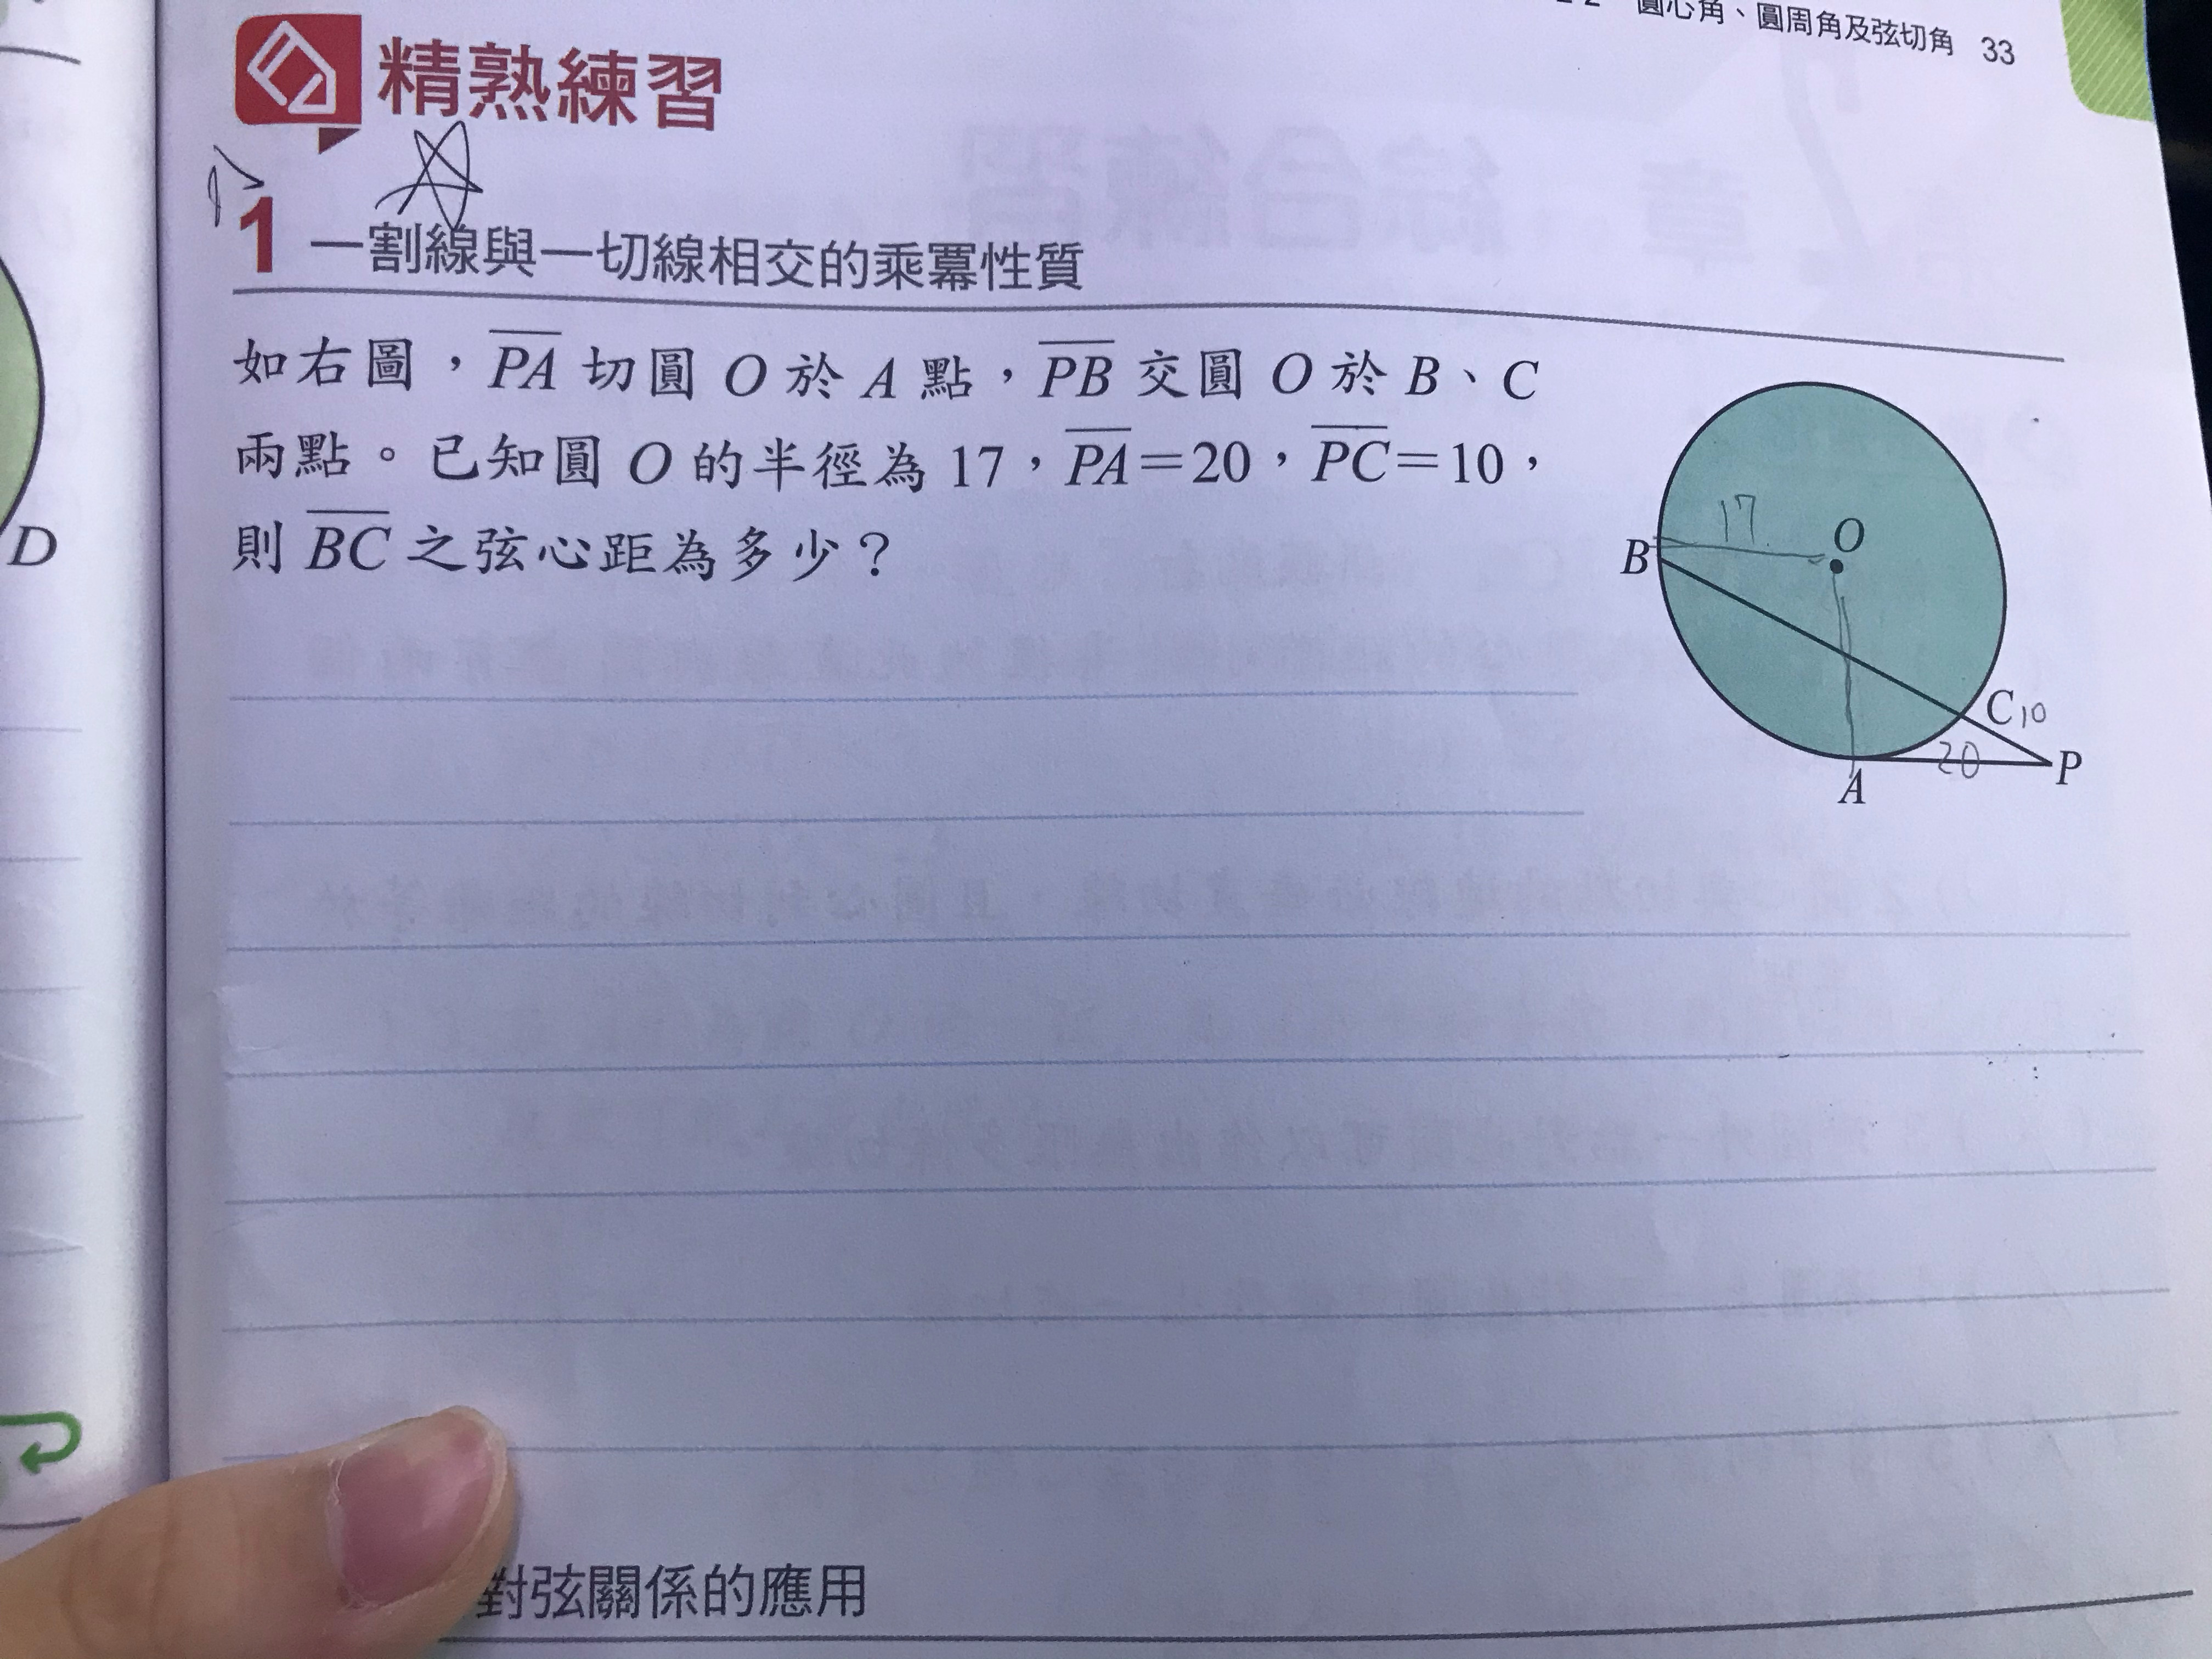 圓心角、圓周角及弦切角 33
精熟練習
1 一割線與一切線相交的乘冪性質
如右圖，PA 切圓 O 於 A 點，PB 交圓 O 於 B、C
兩點。已知圓 O 的半徑為 17，PA＝20，PC＝10，
則 BC 之弦心距為多少？
17
O
B
C 10
20
P
A
D
對弦關係的應用